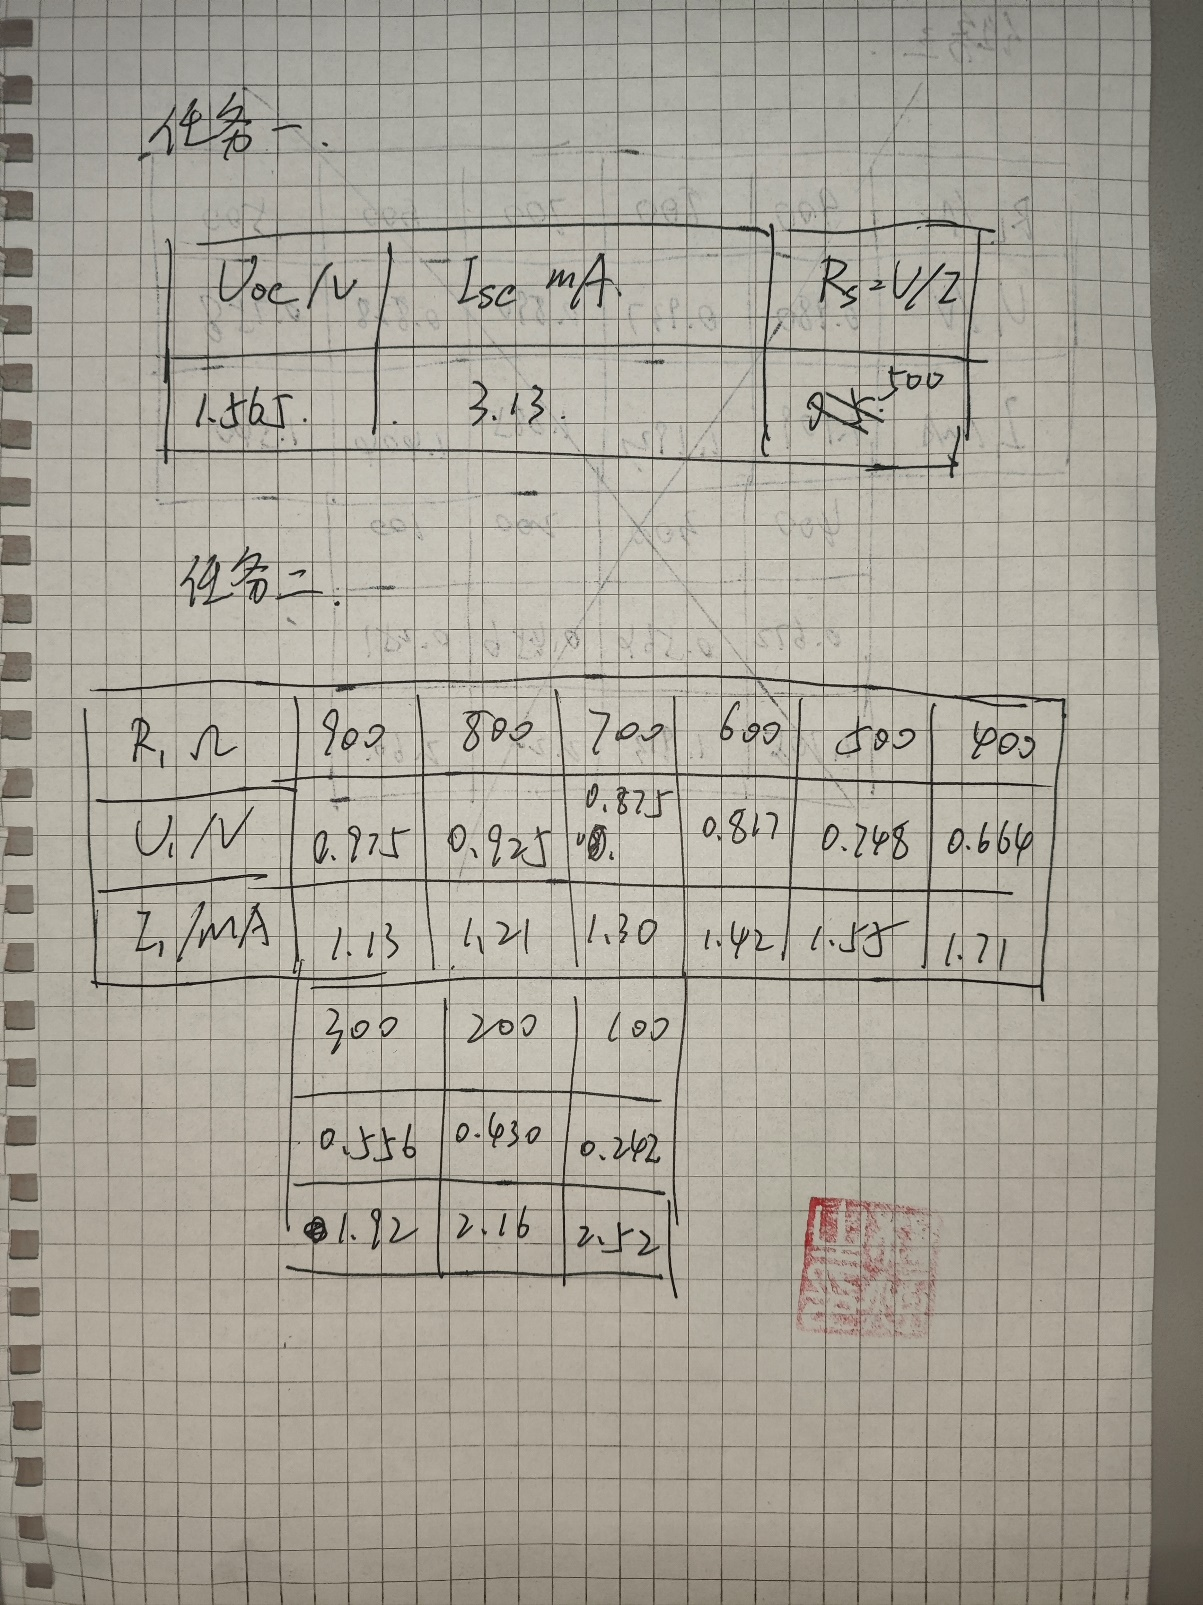 任务一.
Uoc/V Isc mA Rs=U/I
1.565. 3.13. 500
任务二.
R₁ Ω 900 800 700 600 500 400
U₁/V 0.975 0.925 0.875 0.817 0.748 0.664
I₁/mA 1.13 1.21 1.30 1.42 1.55 1.71
300 200 100
0.556 0.430 0.242
1.92 2.16 2.52